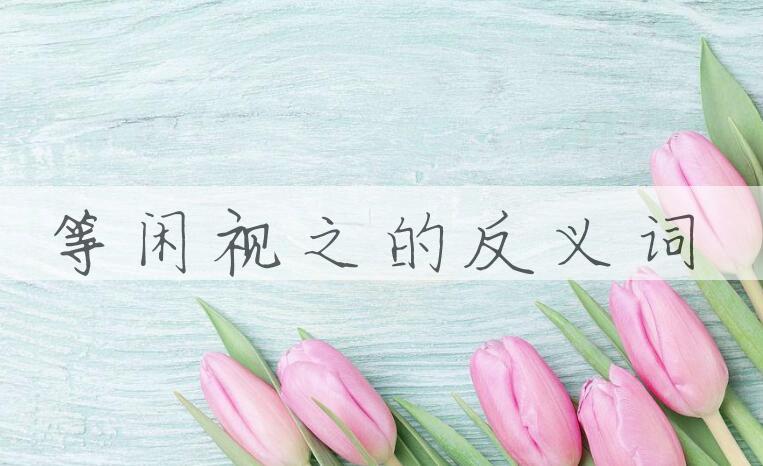 等闲视之的反义词